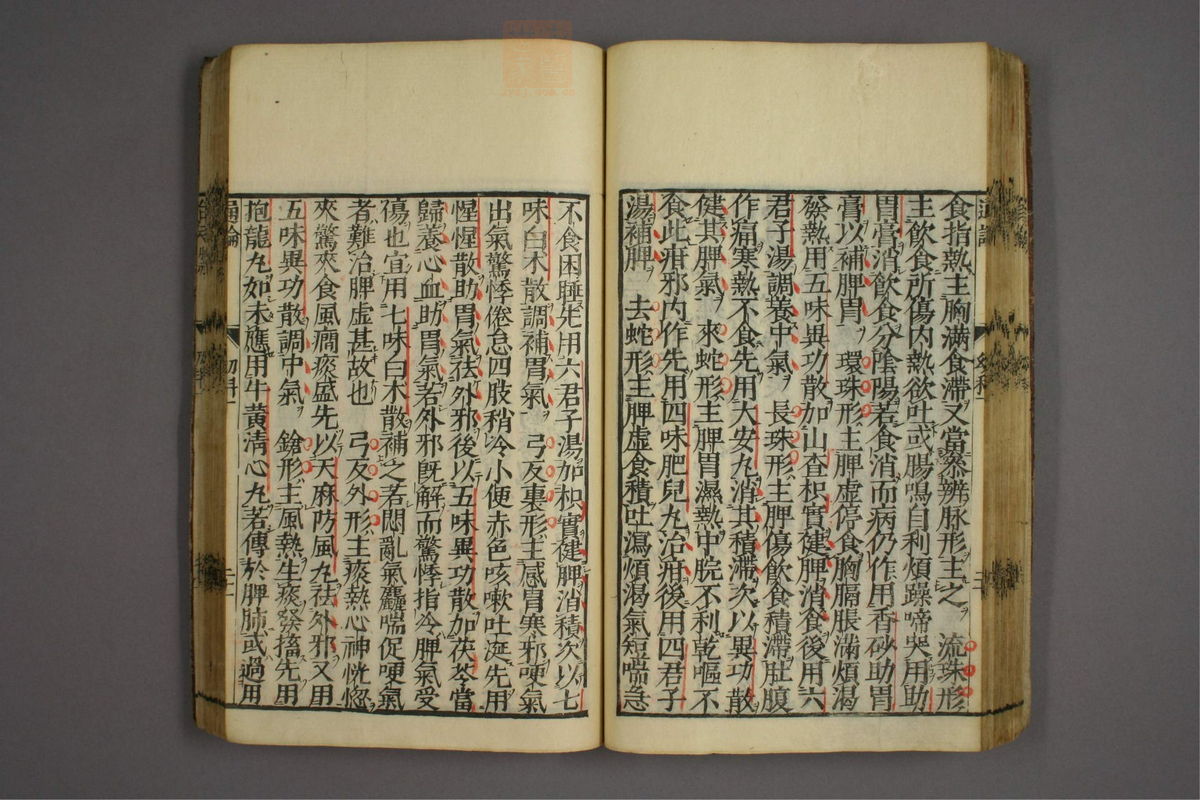 食指熱主胸滿食滯又當叅辨脉形主之　流珠形
主飲食所傷內熱欲吐或腸鳴自利煩躁啼哭用助
胃膏消飲食分陰陽若食消而病仍作用香砂助胃
膏以補脾胃　環珠形主脾虛停食胸膈脹滿煩渴
發熱用五味異功散加山查枳實健脾消食後用六
君子湯調養中氣　長珠形主脾傷飲食積滯肚腹
作痛寒熱不食先用大安丸消其積滯次以異功散
健其脾氣　來蛇形主脾胃濕熱中脘不利乾嘔不
食此疳邪內作先用四味肥兒丸治疳後用四君子
湯補脾　去蛇形主脾虛食積吐瀉煩渴氣短喘急
不食困睡先用六君子湯加枳實健脾消積次以七
味白术散調補胃氣　弓反裏形主感冒寒邪哽氣
出氣驚悸倦怠四肢稍冷小便赤色咳嗽吐涎先用
惺惺散助胃氣祛外邪後以五味異功散加茯苓當
歸養心血助胃氣若外邪既解而驚悸指冷脾氣受
傷也宜用七味白术散補之若悶亂氣麤喘促哽氣
者難治脾虛甚故也　弓反外形主痰熱心神恍惚
夾驚夾食風癇痰盛先以天麻防風丸祛外邪又用
五味異功散調中氣　鎗形主風熱生痰發搐先用
抱龍丸如未應用牛黃清心丸若傳於脾肺或過用
通論